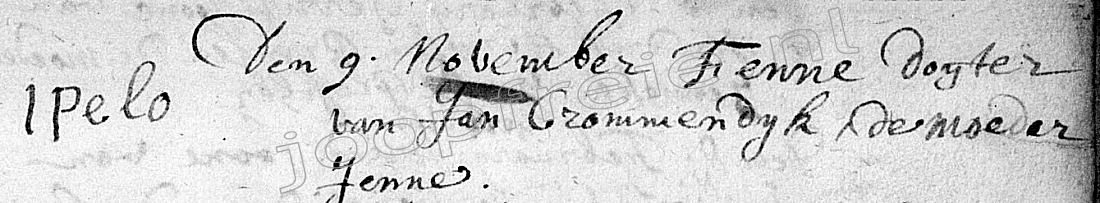 Den 9. November Fenne dogter
Ipelo
van Jan Crommendyk de moeder
Jenne.
joopitreien.nl